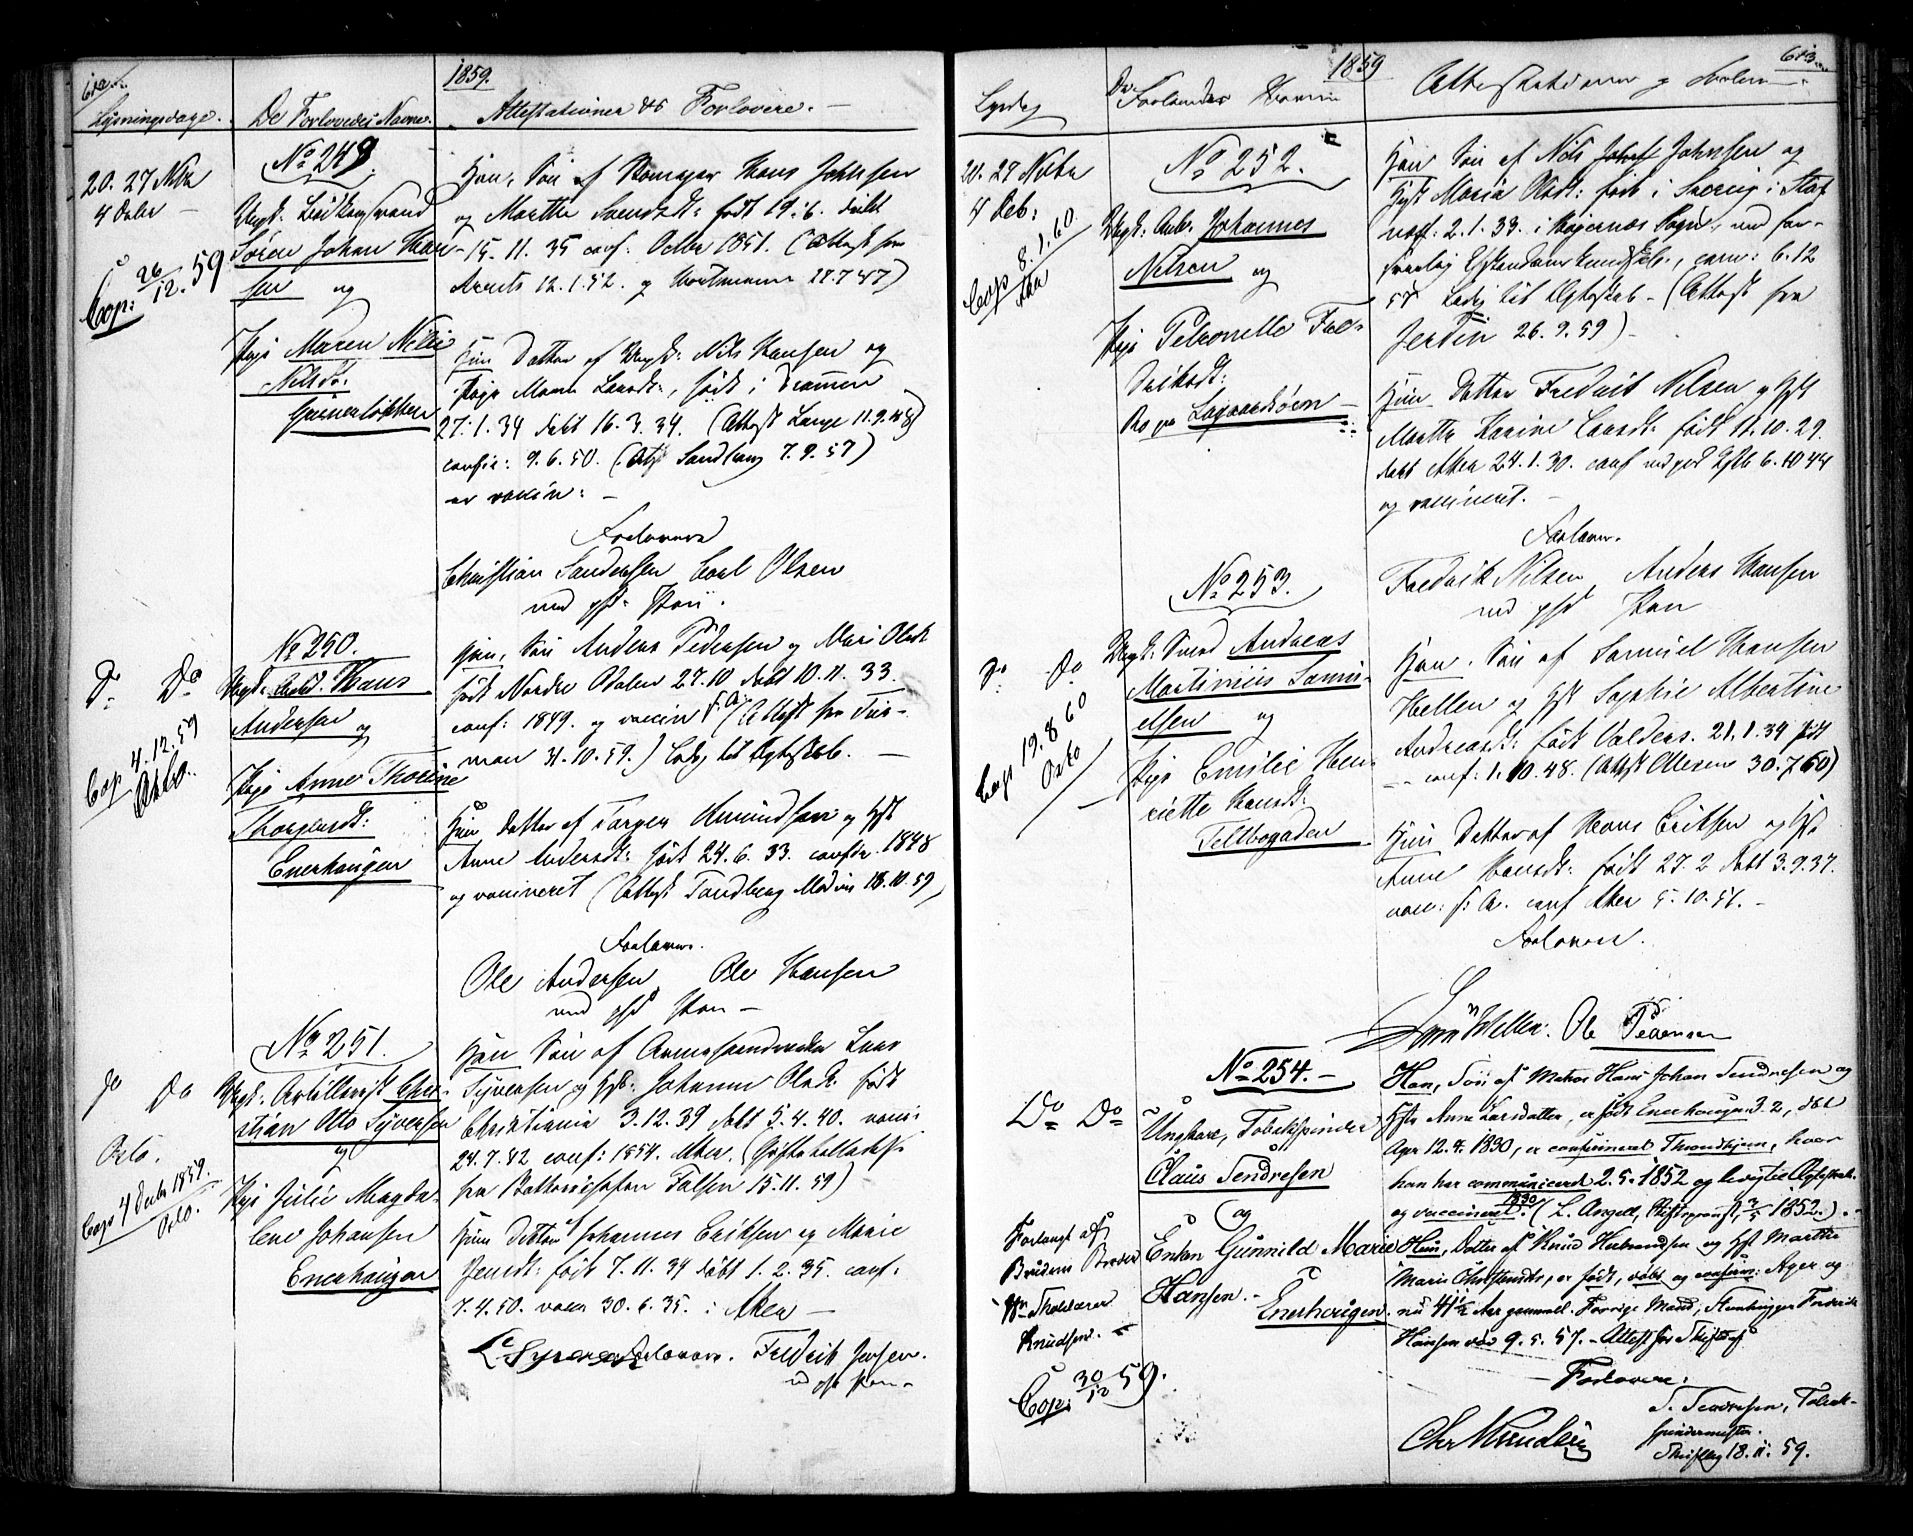 612
1859.
Lysningsdage. De Forlovedes Navne. Attestationer & Forlovere. —
20. 27 Nbr
4 Decbr —
Cop: 26/12. 59
No 249
Ungk:
Søren Johan Han-
sen og
Pige Maren
Nelsd.
Grünerløkken
Han, Søn af Hans Johnsen
og Marthe Svendsd: født 19.6. døbt
15. 11. 35 conf: Octbr 1851. (Attest fra
12. 1. 52. og 27.7.47)
Hun Datter af Ungk: Nils Hansen og
Pige Maren Larsd:, født i Drammen
27. 1. 34 døbt 16. 3. 34. (Attest Lange 11.9.48)
confir: 9. 6. 50. (Att. Sandberg 7. 9. 57)
er vaccin: —
Forlovere
Christian Sandersen Carl Olsen
med Pen.
No 250.
Do Do
Cop 4. 12. 59
Oslo.
Ungk: Hans
Andersen og
Pige Anne Thorine
Enerhaugen
Han, Søn Anders Pedersen og Mari Olsd.
født Nordre Odalen 27.10 døbt 10. 11. 33
conf: 1849. og vaccin (Attest fra
31. 10. 59.) Ledig til Ægteskab. —
Hun datter af Torger Amundsen og Hst
Anne Andersd: født 24. 6. 33. confir. 1848
og vaccineret (Attest Tandberg 18. 10. 59)
Forlovere.
Ole Andersen Ole Hansen
med Pen —
No 251.
Do Do
Oslo.
Cop 4 Decbr 1859.
Oslo.
Ungk: Artillerist Chri-
stian Otto Syversen
og
Pige Julie Magda-
lene Johansen
Enerhaugen
Han Søn af Lars
Syversen og Johanne Olsd. født
Christiania 3. 12. 39 døbt 5. 4. 40. vacci
24. 7. 42 conf: 1854. Aker. (Giftetilladelse
fra Falsen 15. 11. 59)
Hun Datter af Johannes Eriksen og Marie
Jensd: født 7. 11. 34 døbt 1. 2. 35. conf:
7. 4. 50. vacc 30. 6. 35. i Aker —
L. Syversen Forlovere. Fredrik Jensen.
Pen —
1859
613
Lysdag De Forlovedes Navne Attestationer og Forlovere
20. 27 Nbr
4 Deb:
Cop 8. 1. 60
Aker
No 252.
Ungk: Arb. Johannes
Nelsen og
Pige Petronelle Fre-
driksd:
Bo paa Lagaardsøen
Han Søn af Nils Johnsen og
Hst Maria Olsd: født i
2. 1. 33. i Sogn, ved
conv: 6. 12
57 Ledig til Ægteskab — (Attest fra
26. 9. 59) —
Hun Datter Fredrik Nilsen og Hst
Marthe Karine Larsd: født 11. 10. 29.
døbt Aker 24. 1. 30. conf 6. 10 44
og vaccineret. —
Forlover.
Fredrik Nilsen Anders Hansen
med Pen
No 253.
Do Do
Cop 19. 8 60
Oslo
Ungk: Svend Andreas
Martinius Samu-
elsen og
Pige Emilie Hen-
riette Hansd:
Teltbogaden
Han, Søn af Samuel Hansen
Hellen og Hst Sophie Albertine
Andreasd: født Valders. 21. 1. 34
conf: 1. 10. 48. (Attest Ottesen 30. 7. 60)
Hun Datter af Hans Eriksen og Hst
Anne Hansd: født 27. 2 døbt 3. 9. 37.
vacc: conf Aker 5. 10. 51. —
Forlovere.
Sam Hellen. Ole Pedersen
No 254. —
Do Do
Forlangt af
Brudens Broder
Hr Skolelærer
Knudsen. —
Cop: 30/12 59.
Ungkarl, Tobakspinder
Claus Tendresen
og
Enken Gunnild Marie
Hansen. —
Enerhaugen.
Han, Søn af Matros Hans Johan Tendresen og
Hst Anne Larsdatter, er født Enerhaugen 3. 2, døbt
Ager 12. 4. 1830, er confirmeret Throndhjem, hvor
han har communiceret 2. 5. 1852 og ledig til Ægteskab
og vaccineret. 1830 (L. Angell, Stiftsprovst, 3/5 1852.). —
Hun, Datter af Knud Herbrandsen og Hst Marthe
Marie Christensd:, er født, døbt og confirm: Ager og
nu 41½ Aar gammel. Forrige Mand, Steenhugger Frederik
Hansen død 9. 5. 57. — Attest for Skifte af
Forlovere.
Chr Mundbye
T. Tendresen, Tobak-
spindermester.
Skifteg 18. 11. 59.